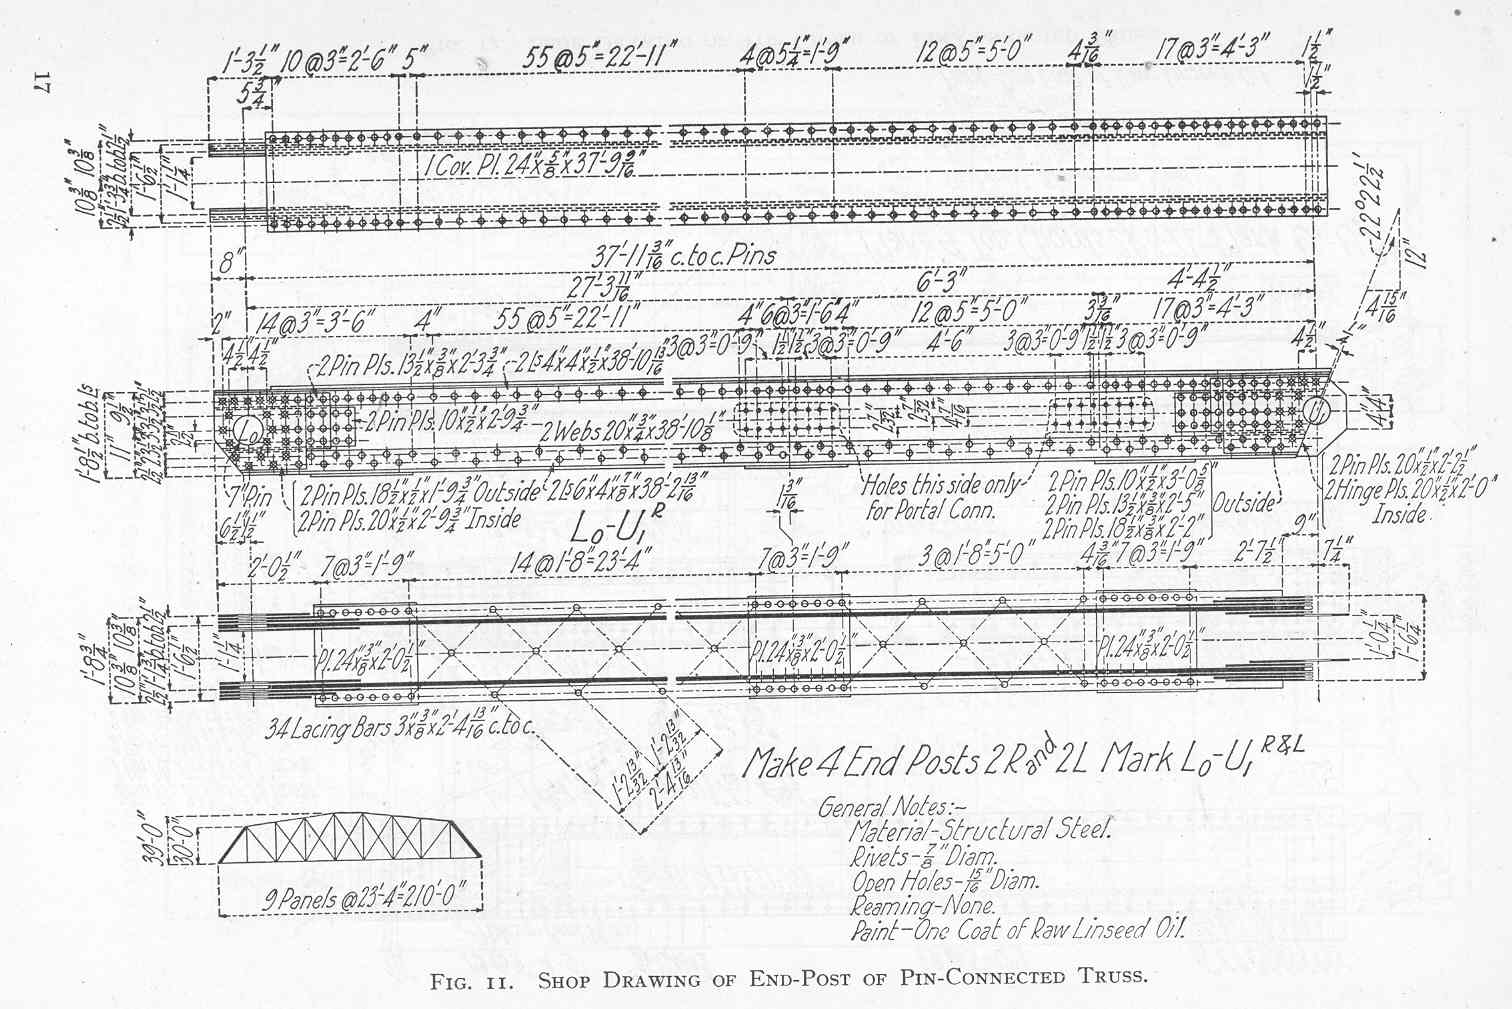 17
1'-3½" 10@3"=2'-6" 5" 55@5"=22'-11" 4@5¼"=1'-9" 12@5"=5'-0" 4 3/16" 17@3"=4'-3" 1½"
5¾" 1½"
10⅜" 10⅜"
1'-0½"
1'-1¼"
1 Cov. Pl. 24"x⅝"x37'-9 9/16"
22°-22½'
12"
4 15/16"
8" 37'-11 3/16" c. to c. Pins
27'-3 11/16" 6'-3" 4'-4½"
2" 14@3"=3'-6" 4" 55@5"=22'-11" 4" 6@3"=1'-6" 4" 12@5"=5'-0" 3 3/16" 17@3"=4'-3"
4½" 4½" 3@3"=0'-9" 1½" 1½" 3@3"=0'-9" 4'-6" 3@3"=0'-9" 1½" 1½" 3@3"=0'-9" 4½" 1"
2 Pin Pls. 13½"x⅜"x2'-3¾" 2 Ls 4"x4"x½"x38'-10 13/16"
2 Pin Pls. 10"x½"x2'-9¾"
2 Webs 20"x¾"x38'-10⅛"
1'-8½" b. to b. Ls
11" 9½"
4" 4"
Lo
7" Pin
6½" ½"
2 Pin Pls. 18½"x½"x1'-9¾" Outside
2 Pin Pls. 20"x½"x2'-9¾" Inside
2 Ls 6"x4"x⅞"x38'-2 13/16"
1 3/16"
Holes this side only
for Portal Conn.
2 Pin Pls. 10"x½"x3'-0⅝"
2 Pin Pls. 13½"x⅜"x2'-5"
2 Pin Pls. 18½"x⅜"x2'-2"
Outside
2 Pin Pls. 20"x½"x2'-2½"
2 Hinge Pls. 20"x½"x2'-0"
Inside.
Lo-U₁ᴿ
9"
2'-0½" 7@3"=1'-9" 14@1'-8"=23'-4" 7@3"=1'-9" 3@1'-8"=5'-0" 4 3/16" 7@3"=1'-9" 2'-7½" 7¼"
1'-8¾"
10⅜" 10⅜"
1'-6½"
1'-1¼"
Pl. 24"x⅜"x2'-0½" Pl. 24"x⅜"x2'-0½" Pl. 24"x⅜"x2'-0½"
1'-0¼"
1'-6¾"
34 Lacing Bars 3"x⅜"x2'-4 13/16" c. to c.
1'-2 13/32" 1'-2 13/32"
2'-4 13/16"
Make 4 End Posts 2R and 2L Mark Lo-U₁ R&L
General Notes:-
Material-Structural Steel.
Rivets-⅞" Diam.
Open Holes-15/16" Diam.
Reaming-None.
Paint-One Coat of Raw Linseed Oil.
39'-0"
30'-0"
9 Panels @23'-4"=210'-0"
Fig. 11. Shop Drawing of End-Post of Pin-Connected Truss.